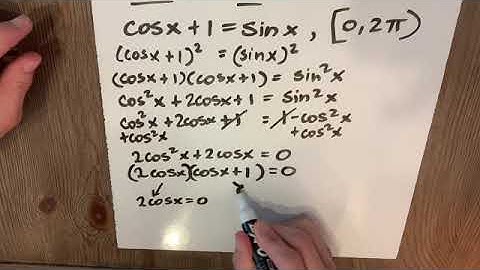 cosx + 1 = sinx , [0, 2π)
(cosx+1)² = (sinx)²
(cosx+1)(cosx+1) = sin²x
cos²x + 2cosx + 1 = sin²x
cos²x + 2cosx + 1 = 1 - cos²x
+cos²x +cos²x
2cos²x + 2cosx = 0
(2cosx)(cosx+1) = 0
2cosx = 0